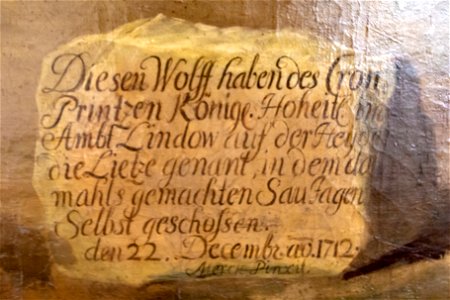 Diesen Wolff haben des Cron
Printzen Königl. Hoheit im
Ambt Lindow auf der Heyde
die Liebe genant, in dem da
mahls gemachten Sau Jagen
Selbst geschossen.
den 22. Decembr. ao. 1712.
Pinxit.